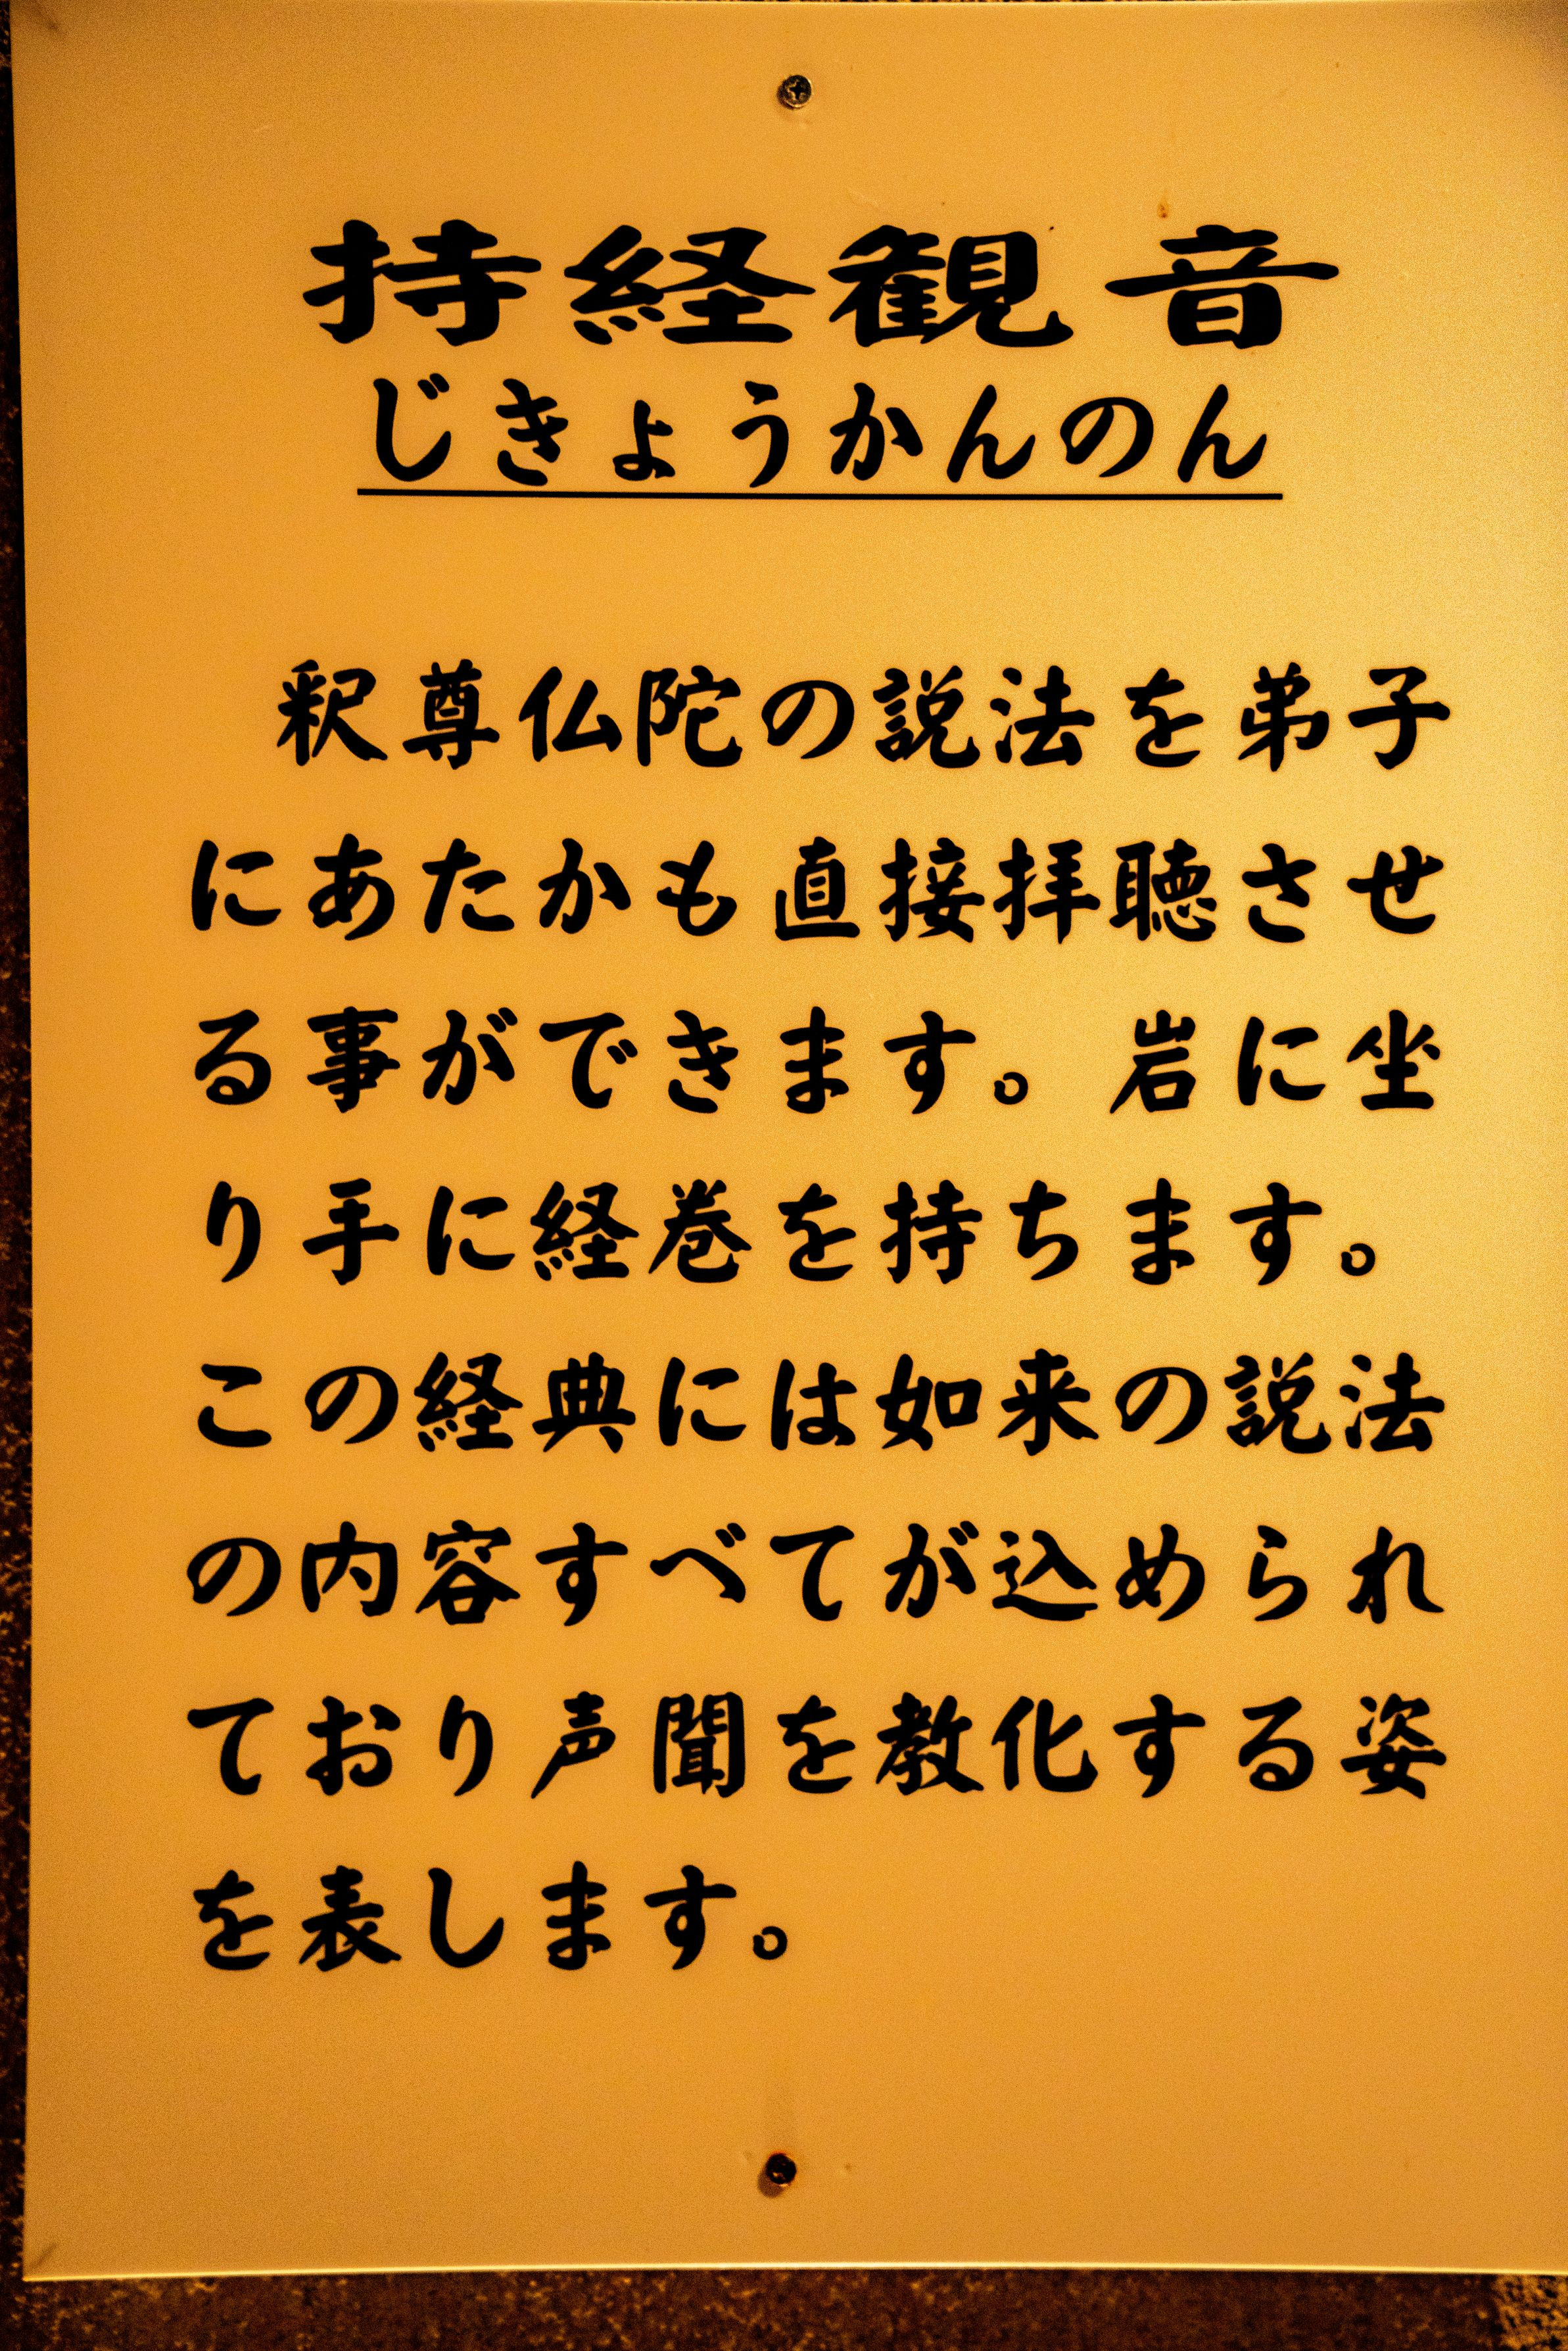 持経観音
じきょうかんのん
釈尊仏陀の説法を弟子
にあたかも直接拝聴させ
る事ができます。岩に坐
り手に経巻を持ちます。
この経典には如来の説法
の内容すべてが込められ
ており声聞を教化する姿
を表します。